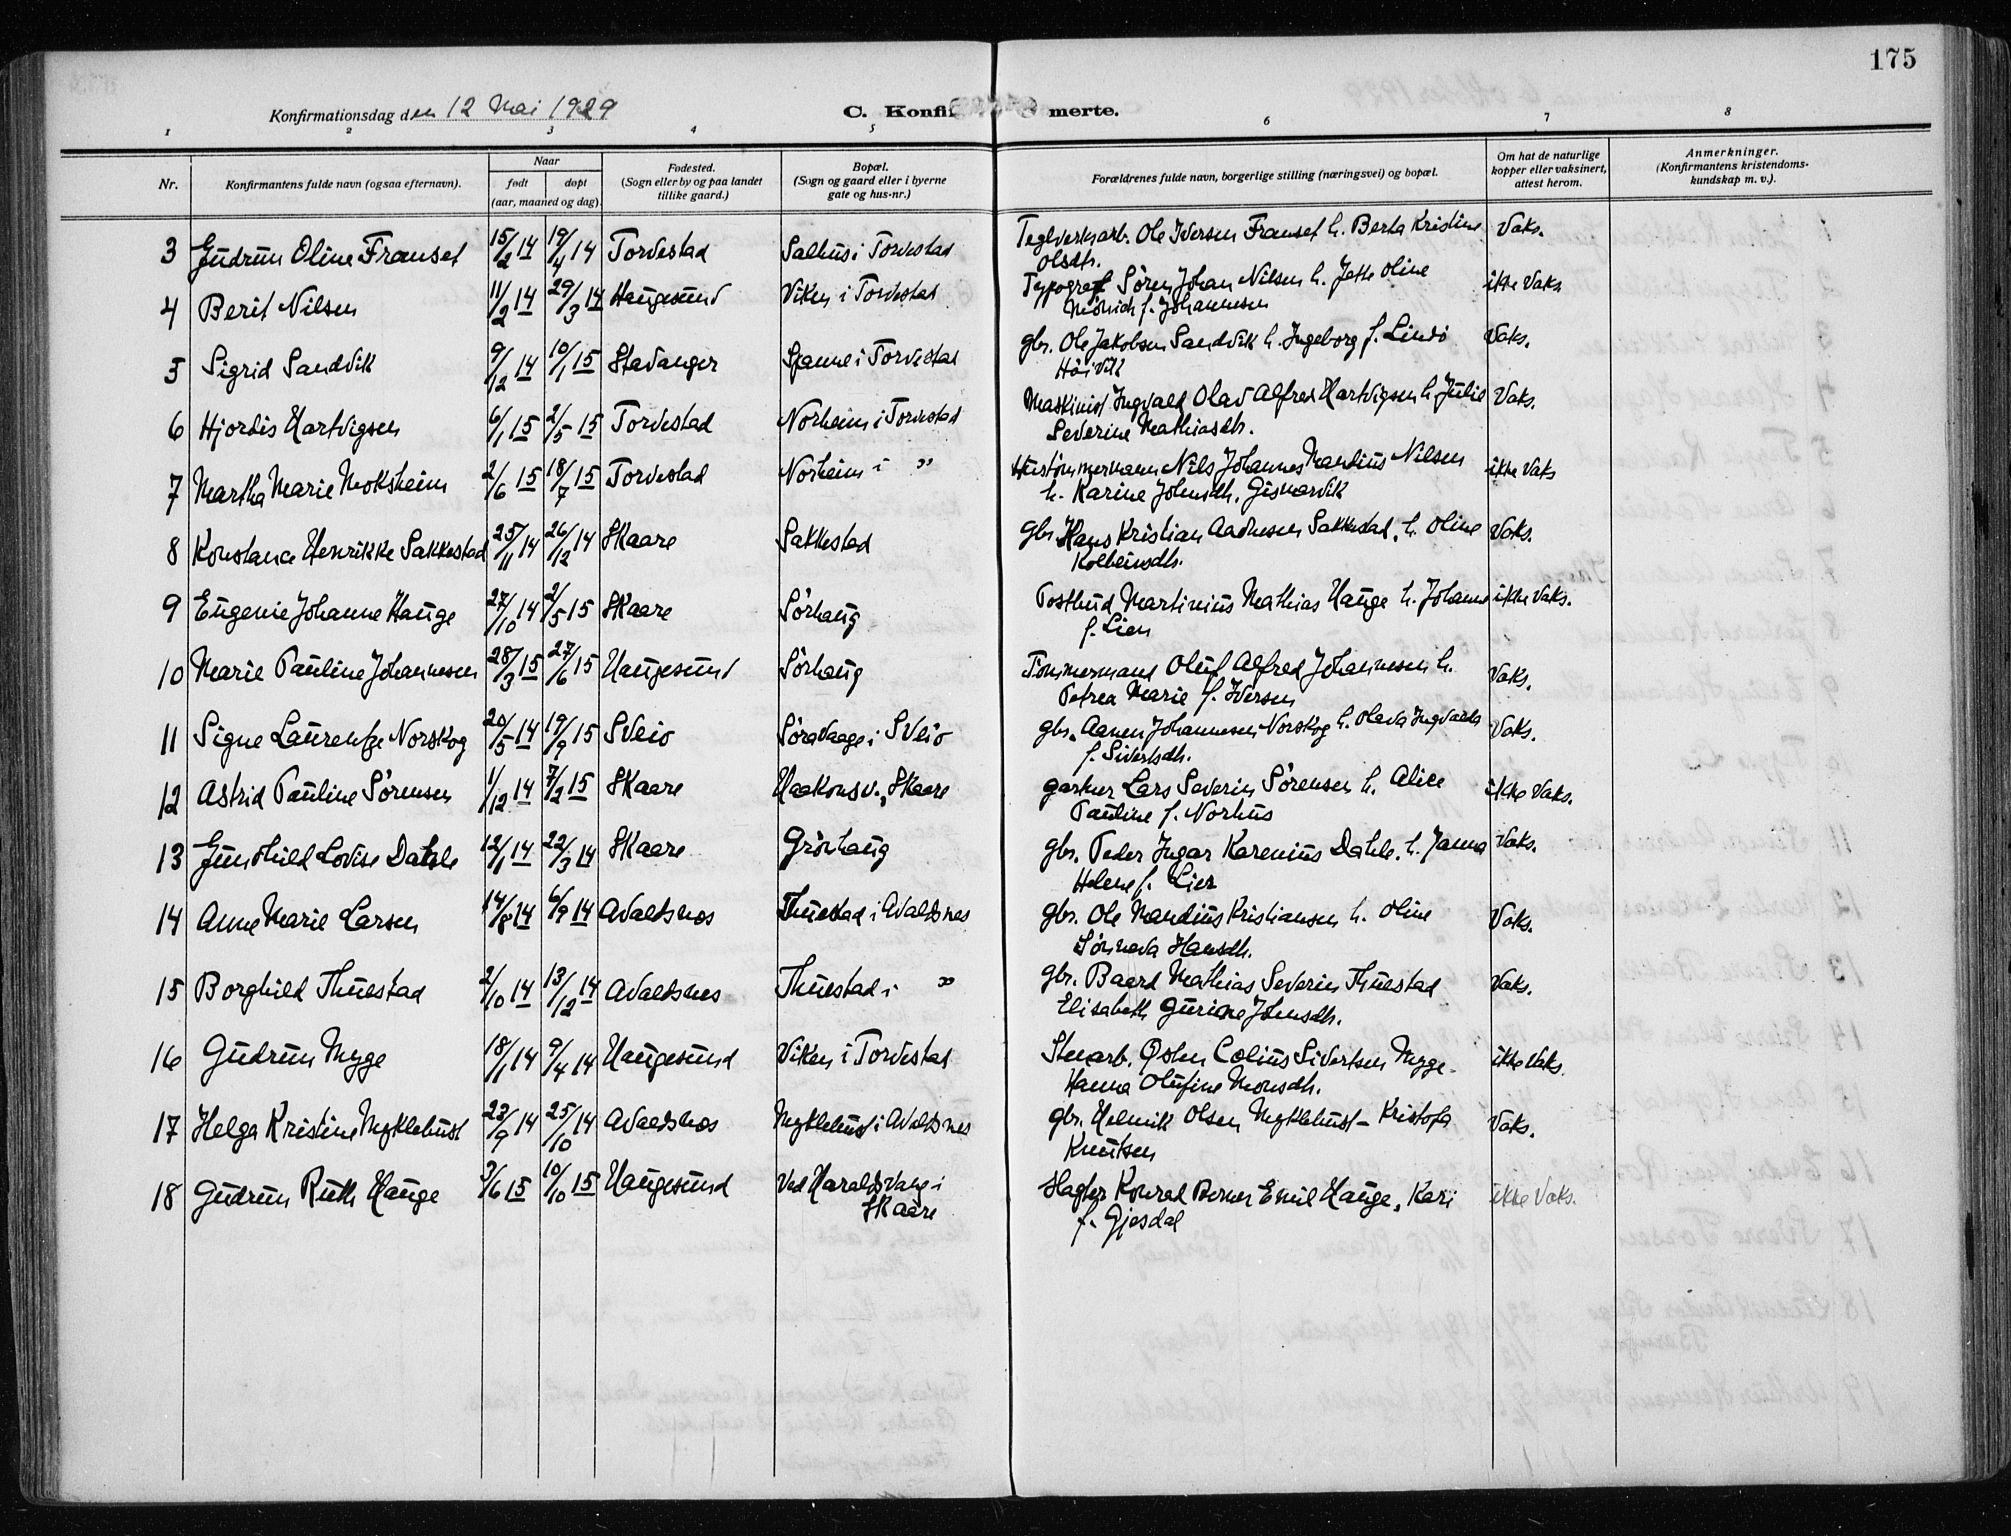 175
Konfirmationsdag den 12 Mai 1929
C. Konfirmerte.
1 2 3 4 5 6 7 8
Nr. Konfirmantens fulde navn (ogsaa efternavn). Naar født døpt (aar, maaned og dag). Fødested. (Sogn eller by og paa landet tillike gaard.) Bopæl. (Sogn og gaard eller i byerne gate og hus-nr.) Forældrenes fulde navn, borgerlige stilling (næringsvei) og bopæl. Om hat de naturlige kopper eller vaksinert, attest herom. Anmerkninger. (Konfirmantens kristendomskundskap m. v.).
3 Gudrun Oline Franset 15/2 14 19/4 14 Torvestad Salhus i Torvestad Teglverksarb. Ole Iversen Franset h. Berta Kristine Vaks.
Olsdtr.
4 Berit Nilsen 11/2 14 29/3 14 Haugesund Viken i Torvestad Typograf Sören Johan Nilsen h. Jette Oline ikke Vaks
Mönnich f. Johannesen
5 Sigrid Sandvik 9/12 14 10/1 15 Stavanger Spanne i Torvestad gbr. Ole Jakobsen Sandvik h. Ingeborg f. Lindö Vaks.
Höivik
6 Hjordis Hartvigsen 6/1 15 2/5 15 Torvestad Norheim i Torvestad Maskinist Ingvald Olav Alfred Hartvigsen h. Julie Vaks.
Severine Mathiasdtr.
7 Martha Marie Moksheim 2/6 15 18/7 15 Torvestad Norheim i " Hustömmermann Nils Johannes Mandius Nilsen ikke Vaks
h. Karine Johnsdtr. Gismarvik
8 Konstance Henrikke Sakkestad 25/11 14 26/12 14 Skaare Sakkestad gbr. Hans Kristian Aadnesen Sakkestad, h. Oline Vaks.
Kolbeinsdtr.
9 Eugenie Johanne Hauge 27/10 14 2/5 15 Skaare Sörhaug Postbud Martinius Mathias Hauge h. Johanne ikke Vaks.
f. Lien
10 Marie Pauline Johannesen 28/3 15 27/6 15 Haugesund Sörhaug Tömmermand Oluf Alfred Johannesen h. Vaks.
Petrea Marie f. Iversen
11 Signe Laurentze Norskog 20/5 14 19/9 15 Sveio Söravaage i Sveio gbr. Aanen Johannesen Norskog h. Olava Ingvarda Vaks.
f. Sivertsdtr.
12 Astrid Pauline Sörensen 1/12 14 7/2 15 Skaare Haakonsv., Skaare gartner Lars Severin Sörensen h. Alice ikke Vaks.
Pauline f. Norhus
13 Gunshild Lovise Dahle 12/1 14 22/3 14 Skaare Grönhaug gbr. Peder Ingar Karenius Dahle, h. Janna Vaks.
Helene f. Lier
14 Anne Marie Larsen 14/8 14 6/9 14 Avaldsnes Thuestad i Avaldsnes gbr. Ole Mandius Kristiansen h. Oline Vaks.
Sönneva Hansdtr.
15 Borghild Thuestad 2/10 14 13/12 14 Avaldsnes Thuestad i " gbr. Baard Mathias Severin Thuestad Vaks.
Elisabeth Gurine Johnsdtr.
16 Gudrun Mygge 18/1 14 9/4 14 Haugesund Viken i Torvestad Stuarb. Osten Colius Sivertsen Mygge. ikke Vaks.
Hanna Olufine Monsdtr.
17 Helga Kristine Myklebust 23/9 14 25/10 14 Avaldsnes Myklebust i Avaldsnes gbr. Helmik Olsen Myklebust - Kristofa Vaks.
Knutsen
18 Gudrun Ruth Hauge 3/6 15 10/10 15 Haugesund Ved Haraldsvang i Slagter Konrad Berner Emil Hauge, Kari ikke Vaks.
Skaare f. Gjesdal